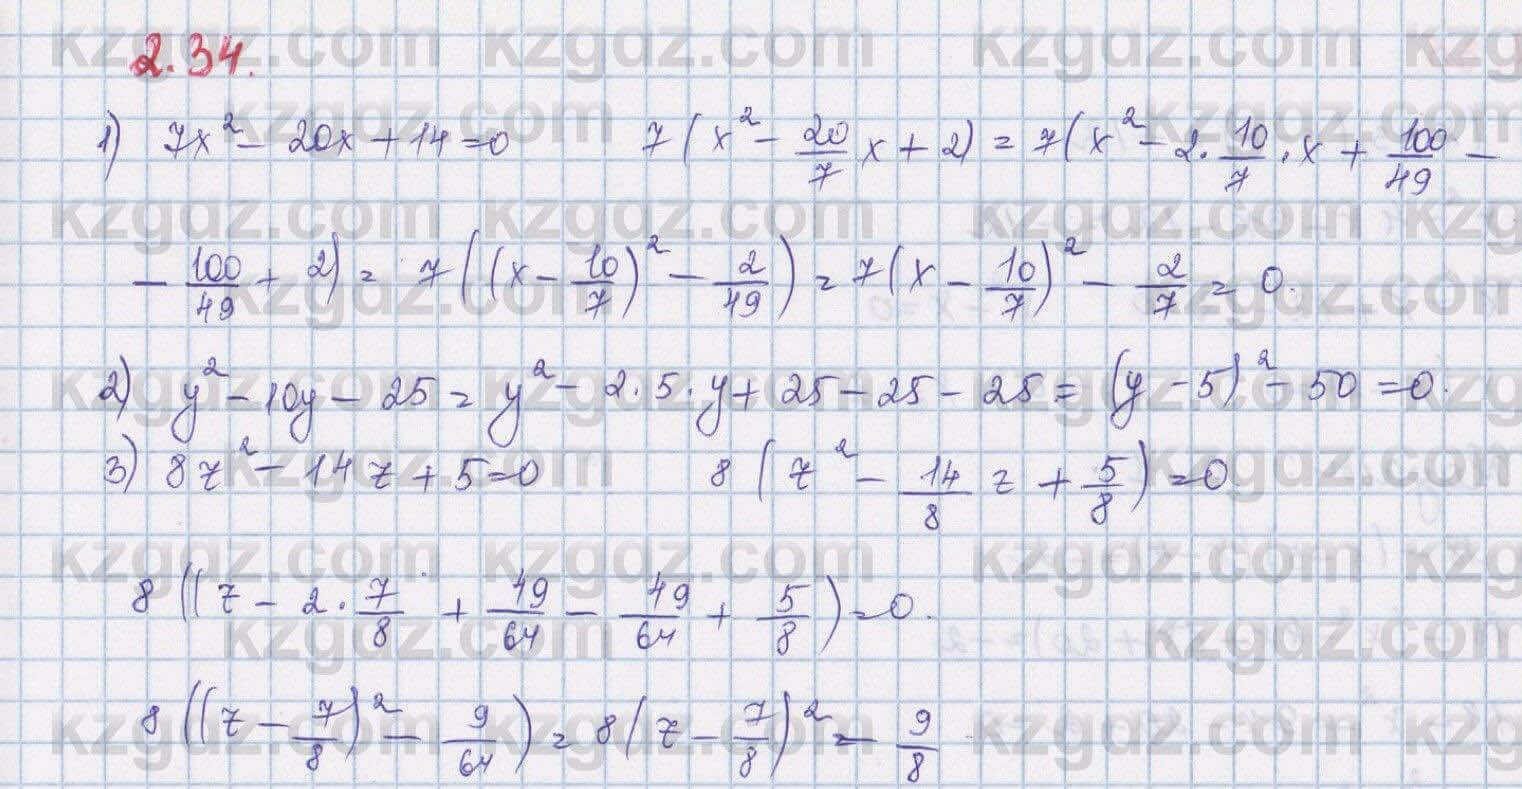 2.34.
1) 7x² - 20x + 14 = 0 7(x² - 20/7 x + 2) = 7(x² - 2 · 10/7 · x + 100/49 -
- 100/49 + 2) = 7((x - 10/7)² - 2/49) = 7(x - 10/7)² - 2/7 = 0.
2) y² - 10y - 25 = y² - 2 · 5 · y + 25 - 25 - 25 = (y - 5)² - 50 = 0.
3) 8z² - 14z + 5 = 0 8(z² - 14/8 z + 5/8) = 0
8((z - 2 · 7/8 + 49/64 - 49/64 + 5/8) = 0.
8((z - 7/8)² - 9/64) = 8(z - 7/8)² = - 9/8
kzgdz.com